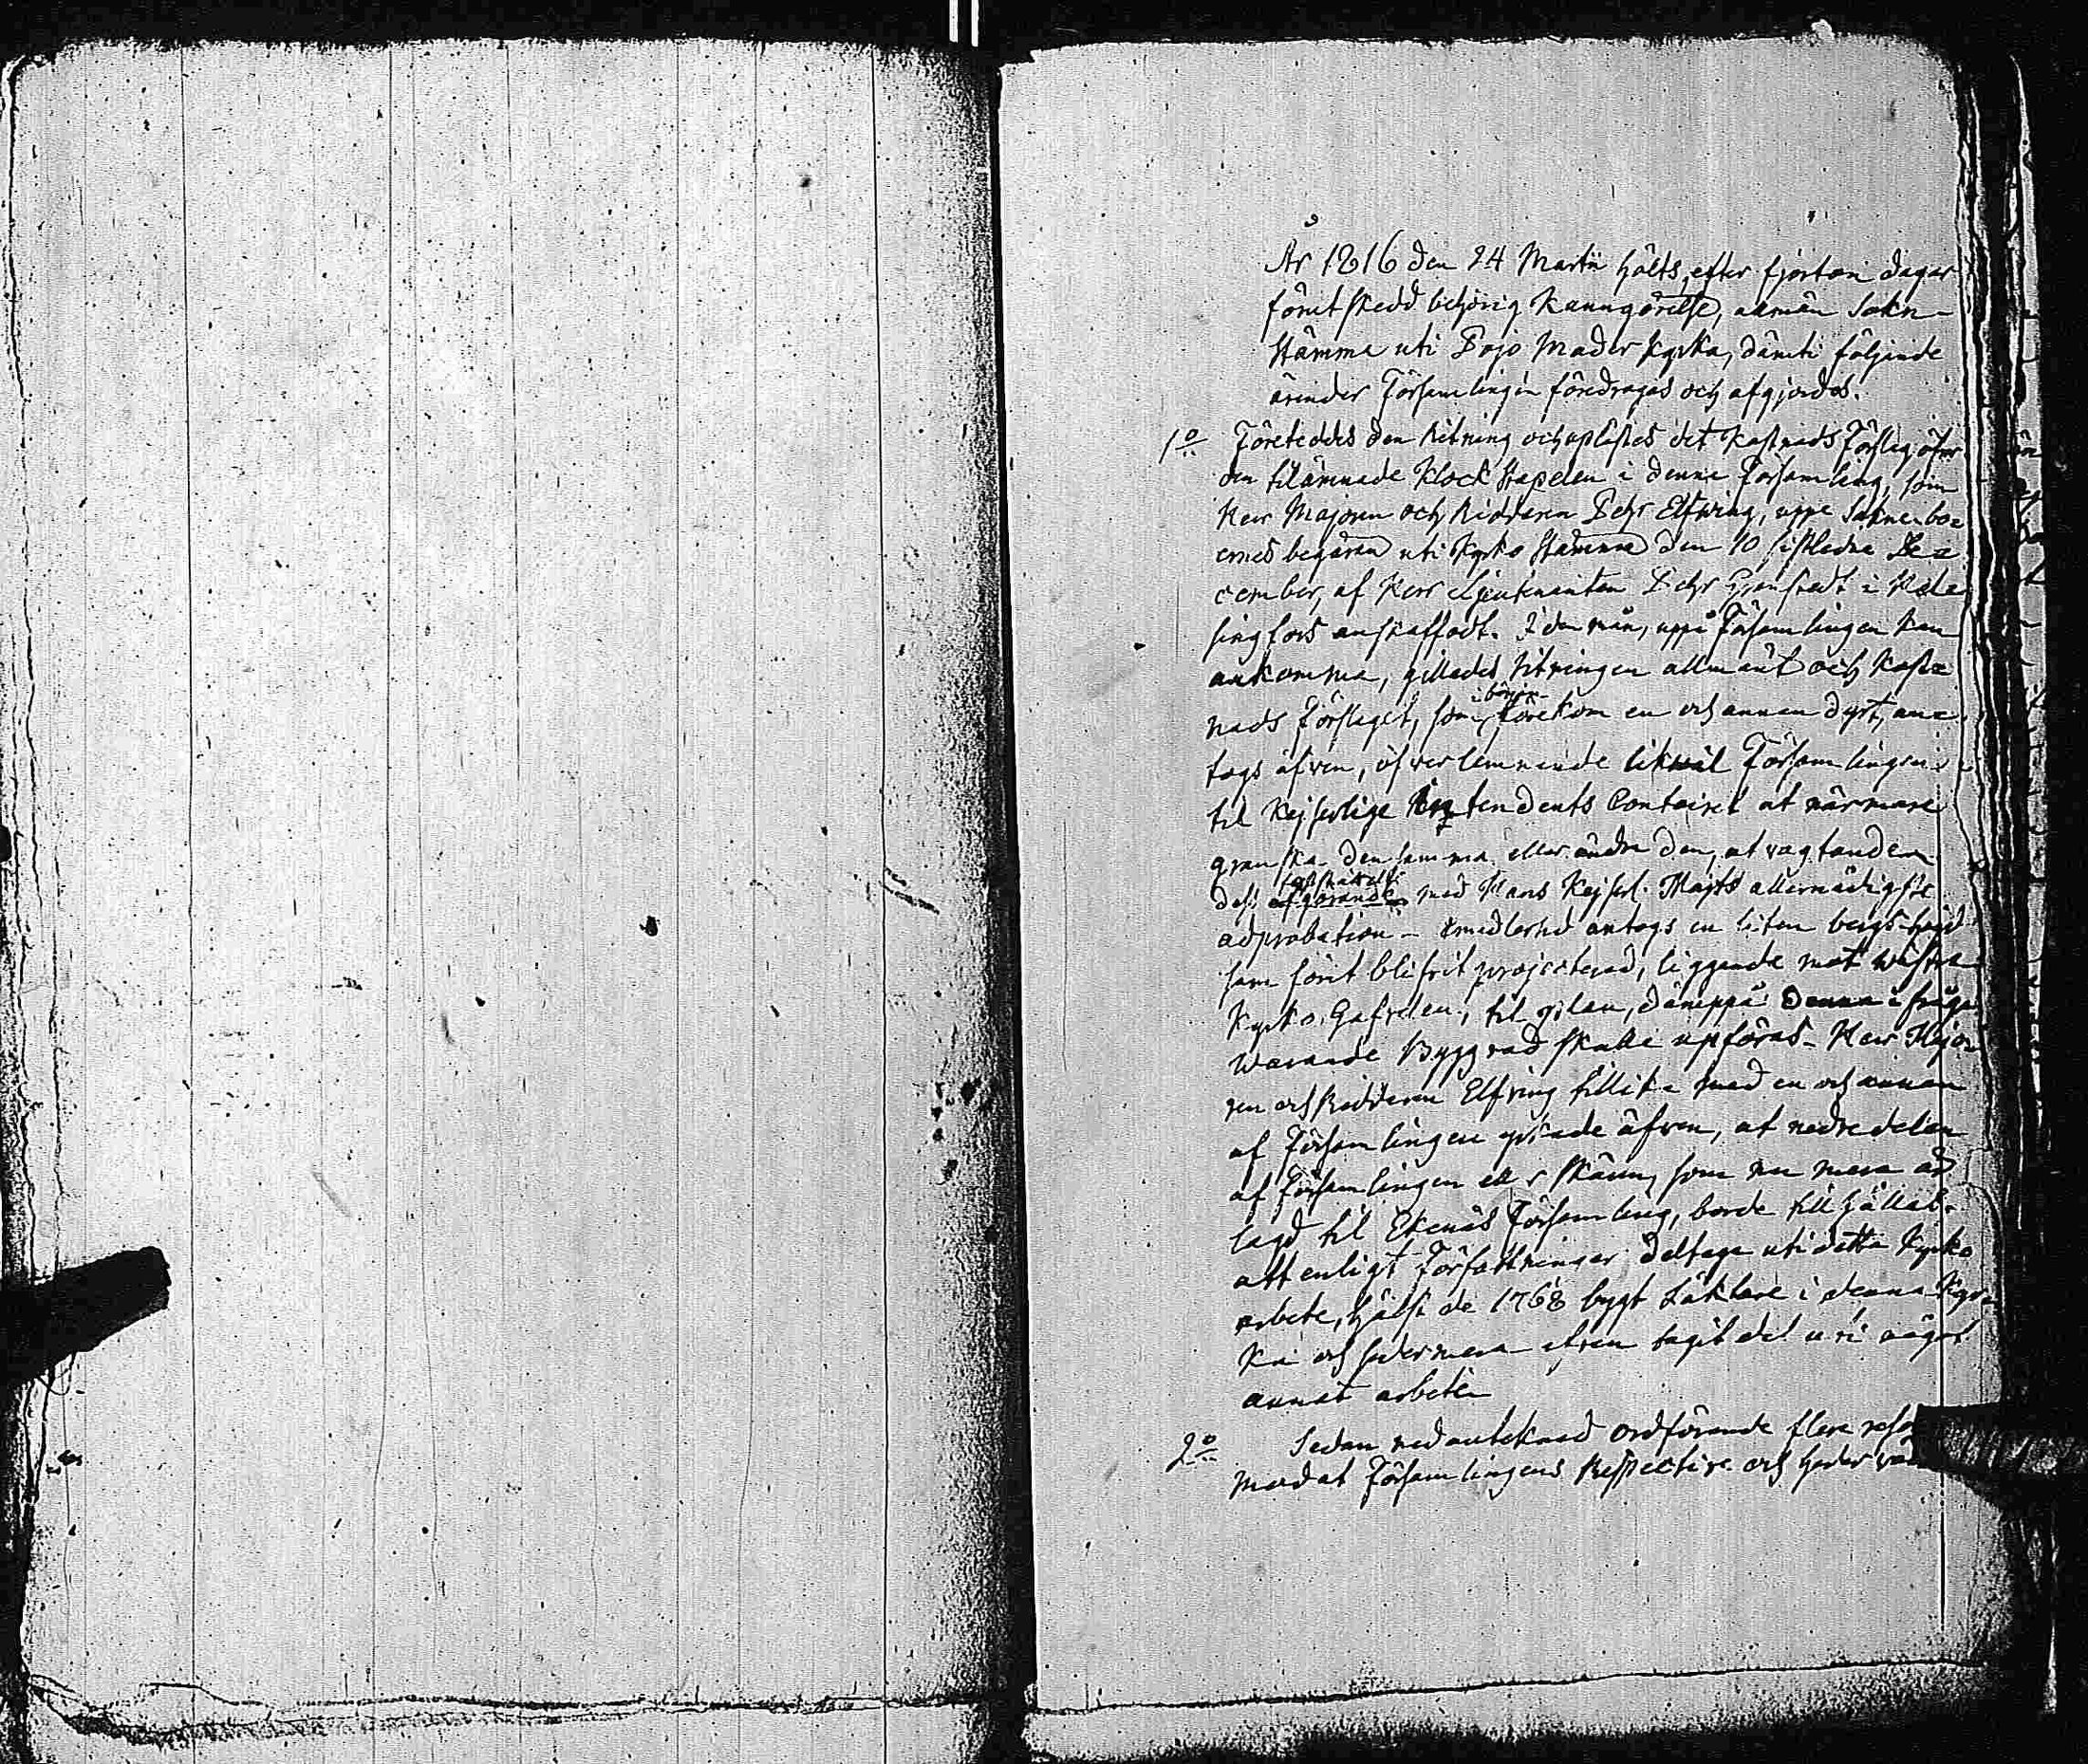 År 1816 den 24 Martii hölts, efter fjorton dagar
förut skedd behörig Kunngörelse, allmän Sokn-
stämma uti Pojo Moder Kyrka, däruti följande
ärender Församlingen föredrogos och afgjordes.
1o Företeddes den Ritning och uplästes det Kostnads Förslag öfver
den tilämnade Klock Stapelen i denne Församling, som
Herr Majoren och Riddaren Pehr Elfving, uppå Sokneboe-
ernes begäran uti Kyrko Stämma den 10 sistledne De-
cember, af Herr Lieutenanten Pehr Granstedt i Hel-
singfors anskaffadt. I den mån, uppå Församlingen kan
ankomma, gillades Ritningen allmänt och Kost-
nads Förslaget, som i början förekom en och annan dyrt, an-
togs äfven, öfverlemnande likväl Församlingen
til Kejserlige Intendents Contoiret at närmare
granska densamma eller ändra den, at vagtande
dess afgörande med Hans Kejserl. Maj:ts allernådigste
adprobation - Emedlertid antogs en liten bergs-höjd
som förut blifvit projecterad, liggande mot wästra
Kyrko Gafvelen, til plan, däruppå denna i fråga
warande Byggnad skulle upföras - Herr Majo-
ren och Riddaren Elfving tillika med en och annan
af Församlingen yrkade äfven, at nedre delen
af Församlingen eller Skären, som nu mera är
lagd til Ekenäs Församling, borde tillhållas
att enligt Författningar deltaga uti detta Kyrko
arbete, hälst de 1768 bygt Läktare i denna Kyr-
ka och sedermera äfven tagit del uti något
annat arbete
2o Sedan nedanteknad Ordförande flere
med at Församlingens Respective och